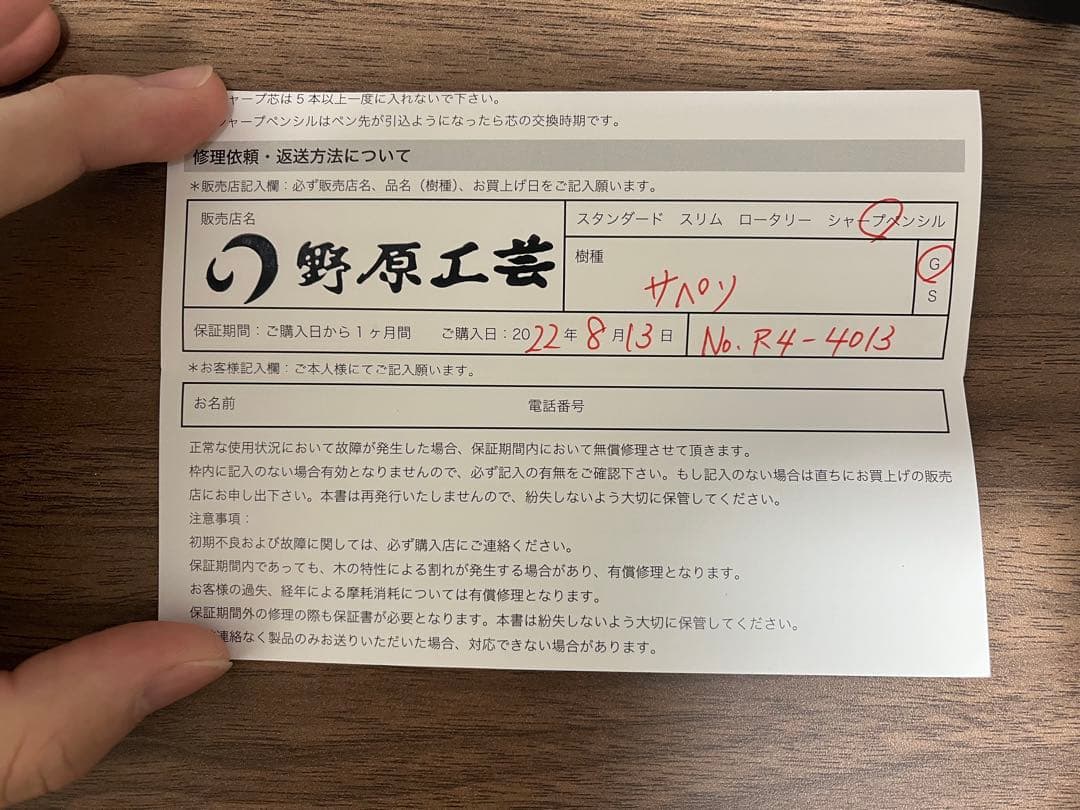 ャープ芯は5本以上一度に入れないで下さい。
ャープペンシルはペン先が引込ようになったら芯の交換時期です。
修理依頼・返送方法について
＊販売店記入欄：必ず販売店名、品名（樹種）、お買上げ日をご記入願います。
販売店名
野原工芸
スタンダード スリム ロータリー シャープペンシル
樹種
サペリ
G
S
保証期間：ご購入日から1ヶ月間 ご購入日：2022年8月13日
No. R4-4013
＊お客様記入欄：ご本人様にてご記入願います。
お名前 電話番号
正常な使用状況において故障が発生した場合、保証期間内において無償修理させて頂きます。
枠内に記入のない場合有効となりませんので、必ず記入の有無をご確認下さい。もし記入のない場合は直ちにお買上げの販売
店にお申し出下さい。本書は再発行いたしませんので、紛失しないよう大切に保管してください。
注意事項：
初期不良および故障に関しては、必ず購入店にご連絡ください。
保証期間内であっても、木の特性による割れが発生する場合があり、有償修理となります。
お客様の過失、経年による摩耗消耗については有償修理となります。
保証期間外の修理の際も保証書が必要となります。本書は紛失しないよう大切に保管してください。
連絡なく製品のみお送りいただいた場合、対応できない場合があります。